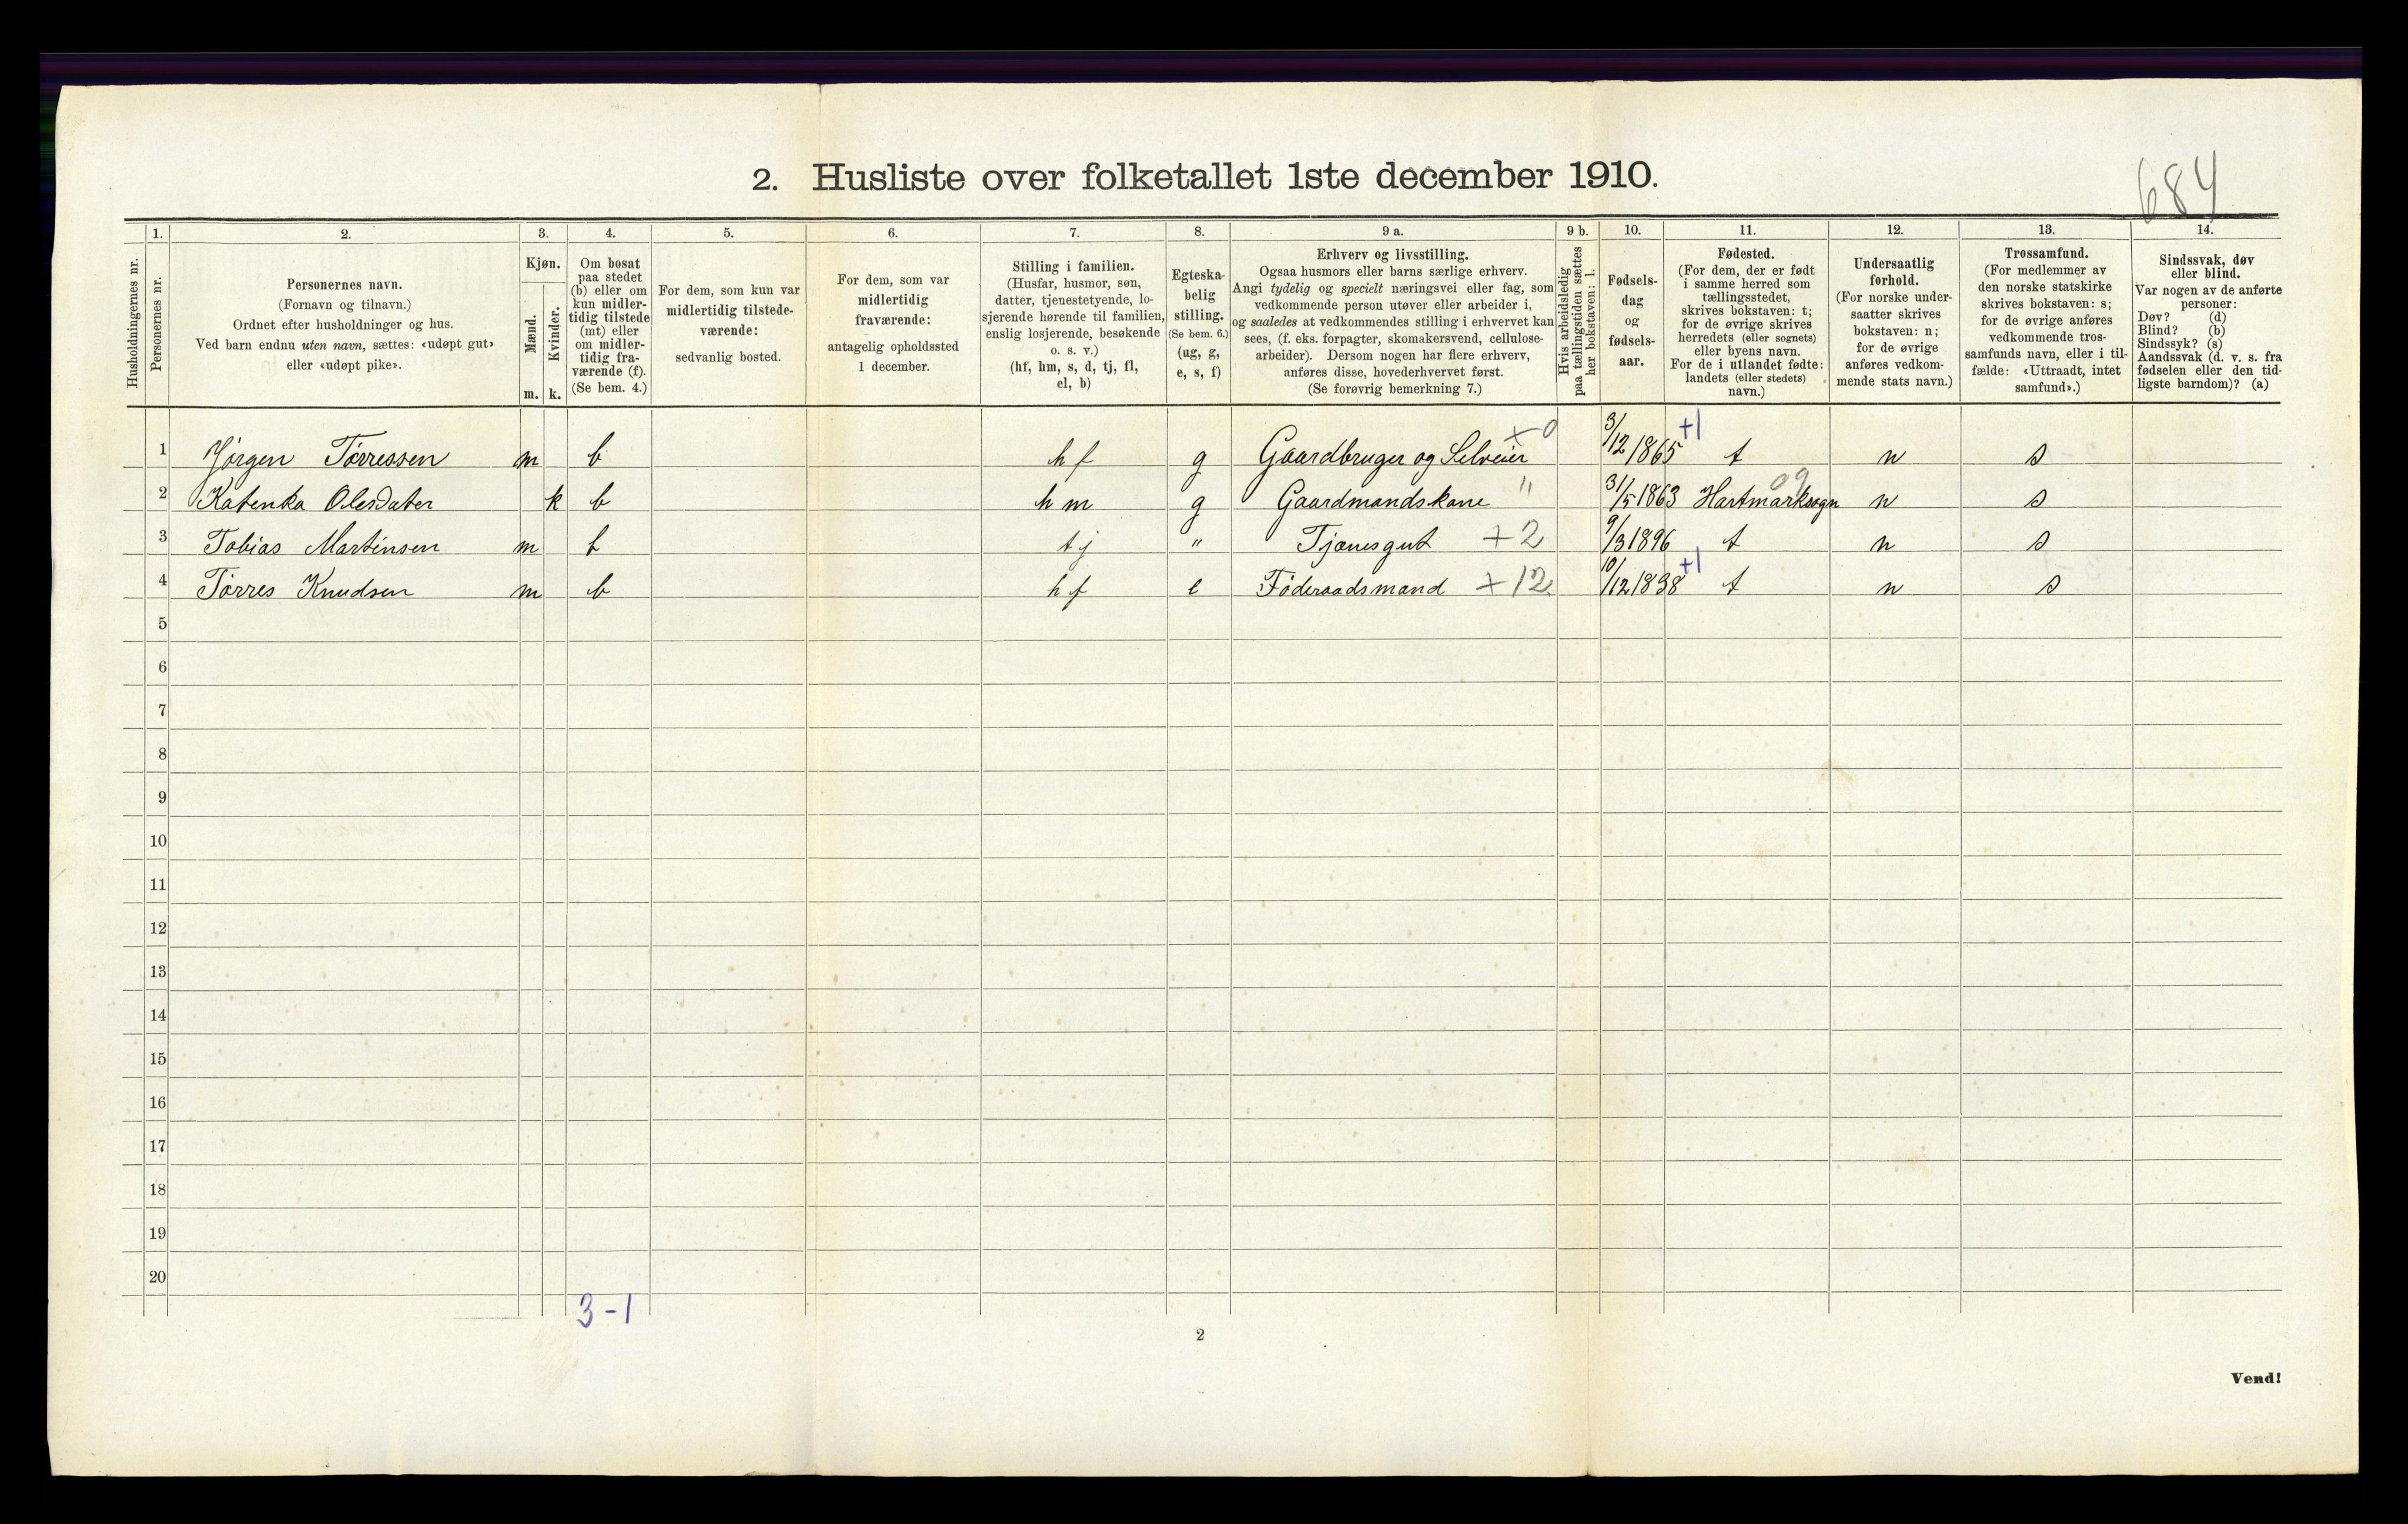 2. Husliste over folketallet 1ste december 1910.
684
Husholdningernes nr.
1. Personernes nr.
2. Personernes navn.
(Fornavn og tilnavn.)
Ordnet efter husholdninger og hus.
Ved barn endnu uten navn, sættes: «udøpt gut»
eller «udøpt pike».
3. Kjøn.
Mænd. Kvinder.
m. k.
4. Om bosat
paa stedet
(b) eller om
kun midler-
tidig tilstede
(mt) eller
om midler-
tidig fra-
værende (f).
(Se bem. 4.)
5. For dem, som kun var
midlertidig tilstede-
værende:
sedvanlig bosted.
6. For dem, som var
midlertidig
fraværende:
antagelig opholdssted
1 december.
7. Stilling i familien.
(Husfar, husmor, søn,
datter, tjenestetyende, lo-
sjerende hørende til familien,
enslig losjerende, besøkende
o. s. v.)
(hf, hm, s, d, tj, fl,
el, b)
8. Egteska-
belig
stilling.
(Se bem. 6.)
(ug, g,
e, s, f)
9 a. Erhverv og livsstilling.
Ogsaa husmors eller barns særlige erhverv.
Angi tydelig og specielt næringsvei eller fag, som
vedkommende person utøver eller arbeider i,
og saaledes at vedkommendes stilling i erhvervet kan
sees, (f. eks. forpagter, skomakersvend, cellulose-
arbeider). Dersom nogen har flere erhverv,
anføres disse, hovederhvervet først.
(Se forøvrig bemerkning 7.)
9 b. Hvis arbeidsledig
paa tællingstiden sættes
her bokstaven: l.
10. Fødsels-
dag
og
fødsels-
aar.
11. Fødested.
(For dem, der er født
i samme herred som
tællingsstedet,
skrives bokstaven: t;
for de øvrige skrives
herredets (eller sognets)
eller byens navn.
For de i utlandet fødte:
landets (eller stedets)
navn.)
12. Undersaatlig
forhold.
(For norske under-
saatter skrives
bokstaven: n;
for de øvrige
anføres vedkom-
mende stats navn.)
13. Trossamfund.
(For medlemmer av
den norske statskirke
skrives bokstaven: s;
for de øvrige anføres
vedkommende tros-
samfunds navn, eller i til-
fælde: «Uttraadt, intet
samfund».)
14. Sindssvak, døv
eller blind.
Var nogen av de anførte
personer:
Døv? (d)
Blind? (b)
Sindssyk? (s)
Aandssvak (d. v. s. fra
fødselen eller den tid-
ligste barndom)? (a)
1 Jørgen Tørressen m b hf g Gaardbruger og Selveier +0 3/12 1865 +1 t n s
2 Katenka Olesdater k b hm g Gaardmandskone " 31/5 1863 Hartmarksogn 09 n s
3 Tobias Martinsen m b tj " Tjenesgut +2 9/3 1896 t n s
4 Tørres Knudsen m b hf e Føderaadsmand +12 10/12 1838 +1 t n s
5
6
7
8
9
10
11
12
13
14
15
16
17
18
19
20
3-1
2
Vend!